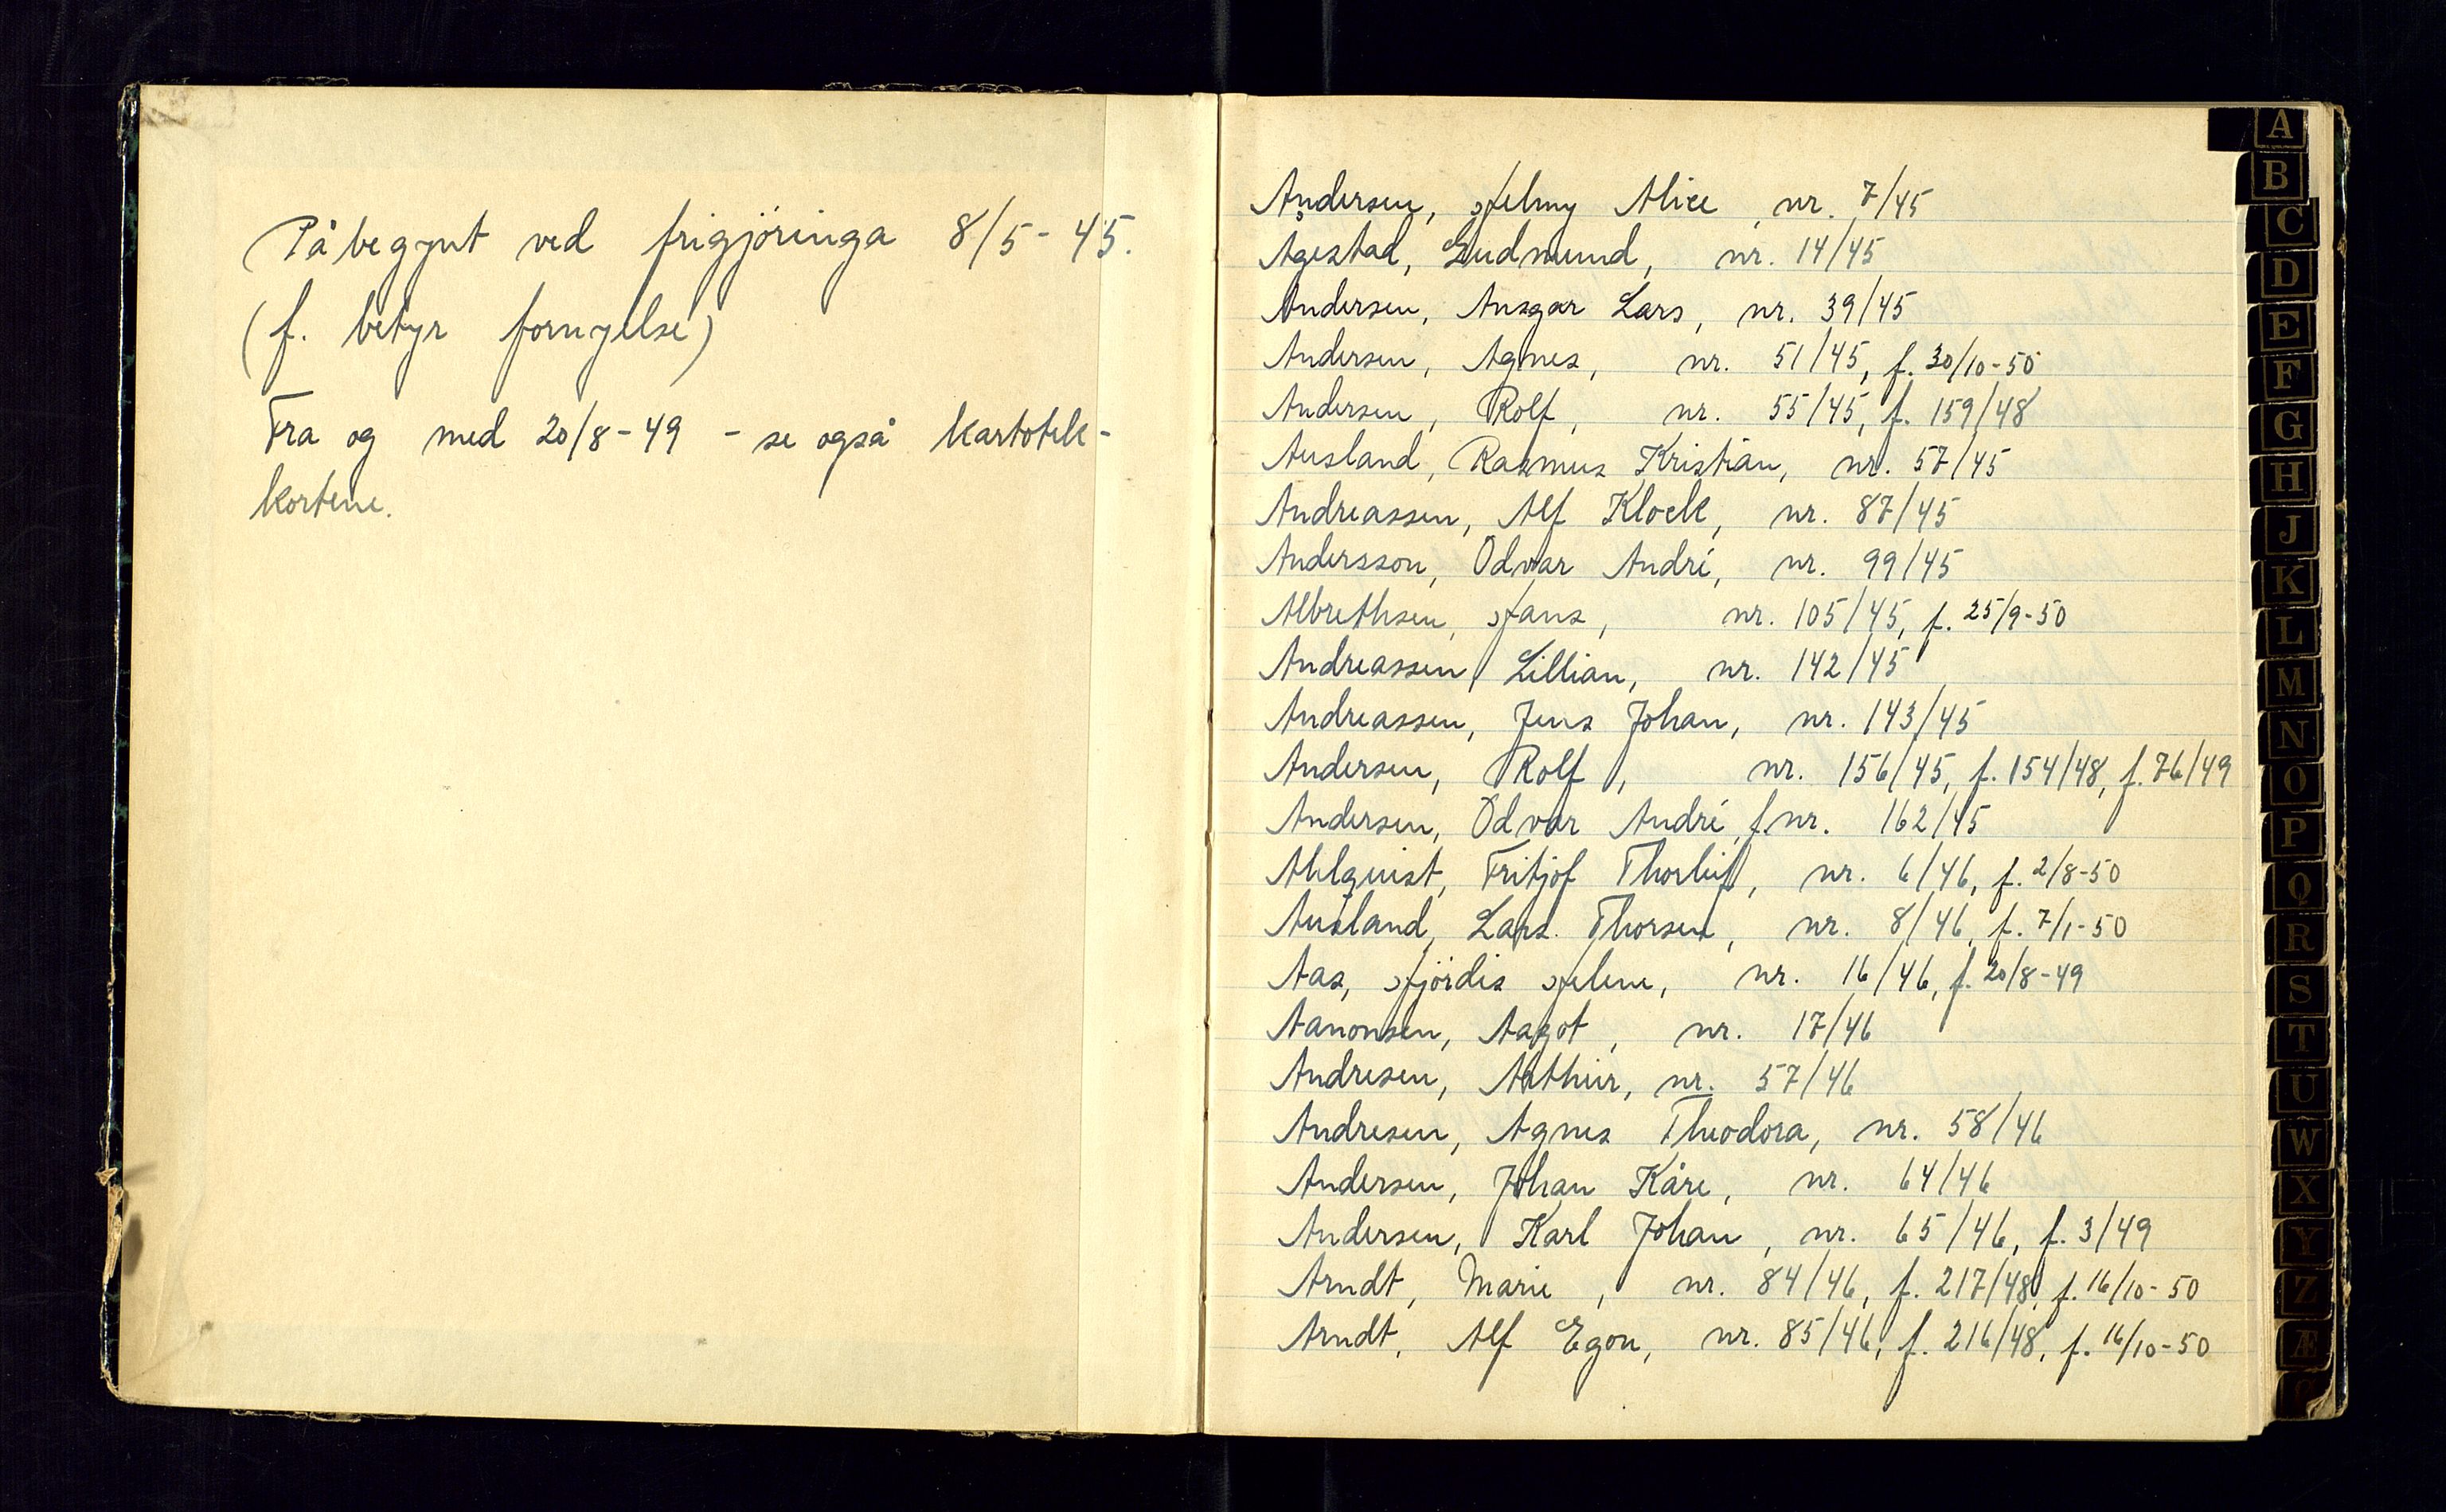 Påbegynt ved frigjöringa 8/5-45.
(f. betyr fornyelse)
Fra og med 20/8-49 - se også kartotek-
kortene.
Andersen, Helmy Alice, nr. 7/45
Ågestad, Gudmund, nr. 14/45
Andersen, Ansgar Lars, nr. 39/45
Andersen, Agnes, nr. 51/45, f. 30/10-50
Andersen, Rolf, nr. 55/45, f. 159/48
Ausland, Rasmus Kristian, nr. 57/45
Andreassen, Alf Klock, nr. 87/45
Andersson, Odvar André, nr. 99/45
Albrethsen, Hans, nr. 105/45, f. 25/9-50
Andreassen, Lillian, nr. 142/45
Andreassen, Jens Johan, nr. 143/45
Andersen, Rolf, nr. 156/45, f. 154/48, f. 76/49
Andersen, Odvar André, f.nr. 162/45
Ahlquist, Fritjof Thorleif, nr. 6/46, f. 2/8-50
Ausland, Lars Thorsen, nr. 8/46, f. 7/1-50
Aas, Hjördis Helene, nr. 16/46, f. 20/8-49
Aanonsen, Aagot, nr. 17/46
Andresen, Arthur, nr. 57/46
Andresen, Agnes Theodora, nr. 58/46
Andersen, Johan Kåre, nr. 64/46
Andersen, Karl Johan, nr. 65/46, f. 3/49
Arndt, Marie, nr. 84/46, f. 217/48, f. 16/10-50
Arndt, Alf Egon, nr. 85/46, f. 216/48, f. 16/10-50
A
B
C
D
E
F
G
H
J
K
L
M
N
O
P
Q
R
S
T
U
W
X
Y
Z
Æ